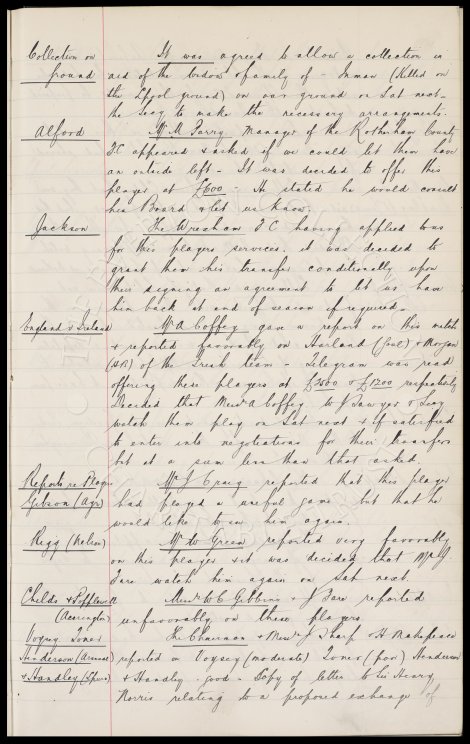 Collection on ground
It was agreed to allow a collection in
aid of the widow & family of - Inman (Killed on
the L'pool ground) on our ground on Sat next -
the Secy to make the necessary arrangements.
Alford
Mr M Parry Manager of the Rotherham County
FC appeared & asked if we could let them have
an outside left - It was decided to offer this
player at £600 - He stated he would consult
his Board & let us know.
Jackson
The Wrexham FC having applied to us
for this players services. it was decided to
grant them his transfer conditionally upon
their signing an agreement to let us have
him back at end of season if required -
England v Ireland
Mr A Coffey gave a report on this match
& reported favorably on Harland (Goal) & Morgan
(HB) of the Irish team - Telegram was read
offering these players at £2500 & £1200 respectively
Decided that Messrs A Coffey W J Sawyer & Secy
watch them play on Sat next & if satisfied
to enter into negotiations for their transfers
but at a sum less than that asked.
Reports re Players
Gibson (Ayr)
Mr J Craig reported that this player
had played a useful game but that he
would like to see him again.
Rigg (Nelson)
Mr to Green reported very favorably
on this player & it was decided that Mr J
Fare watch him again on Sat next.
Childs & Popplewell (Accrington)
Messrs W C Gibbins & J Fare reported
unfavorably on these players
Voysey Jones
Henderson (Arsenal)
& Handley (Spurs)
The Chairman & Messrs J Sharp & H Makepeace
reported on Voysey (moderate) Jones (poor) Henderson
& Handley - good - Copy of letter to Sir Henry
Norris relating to a proposed exchange of